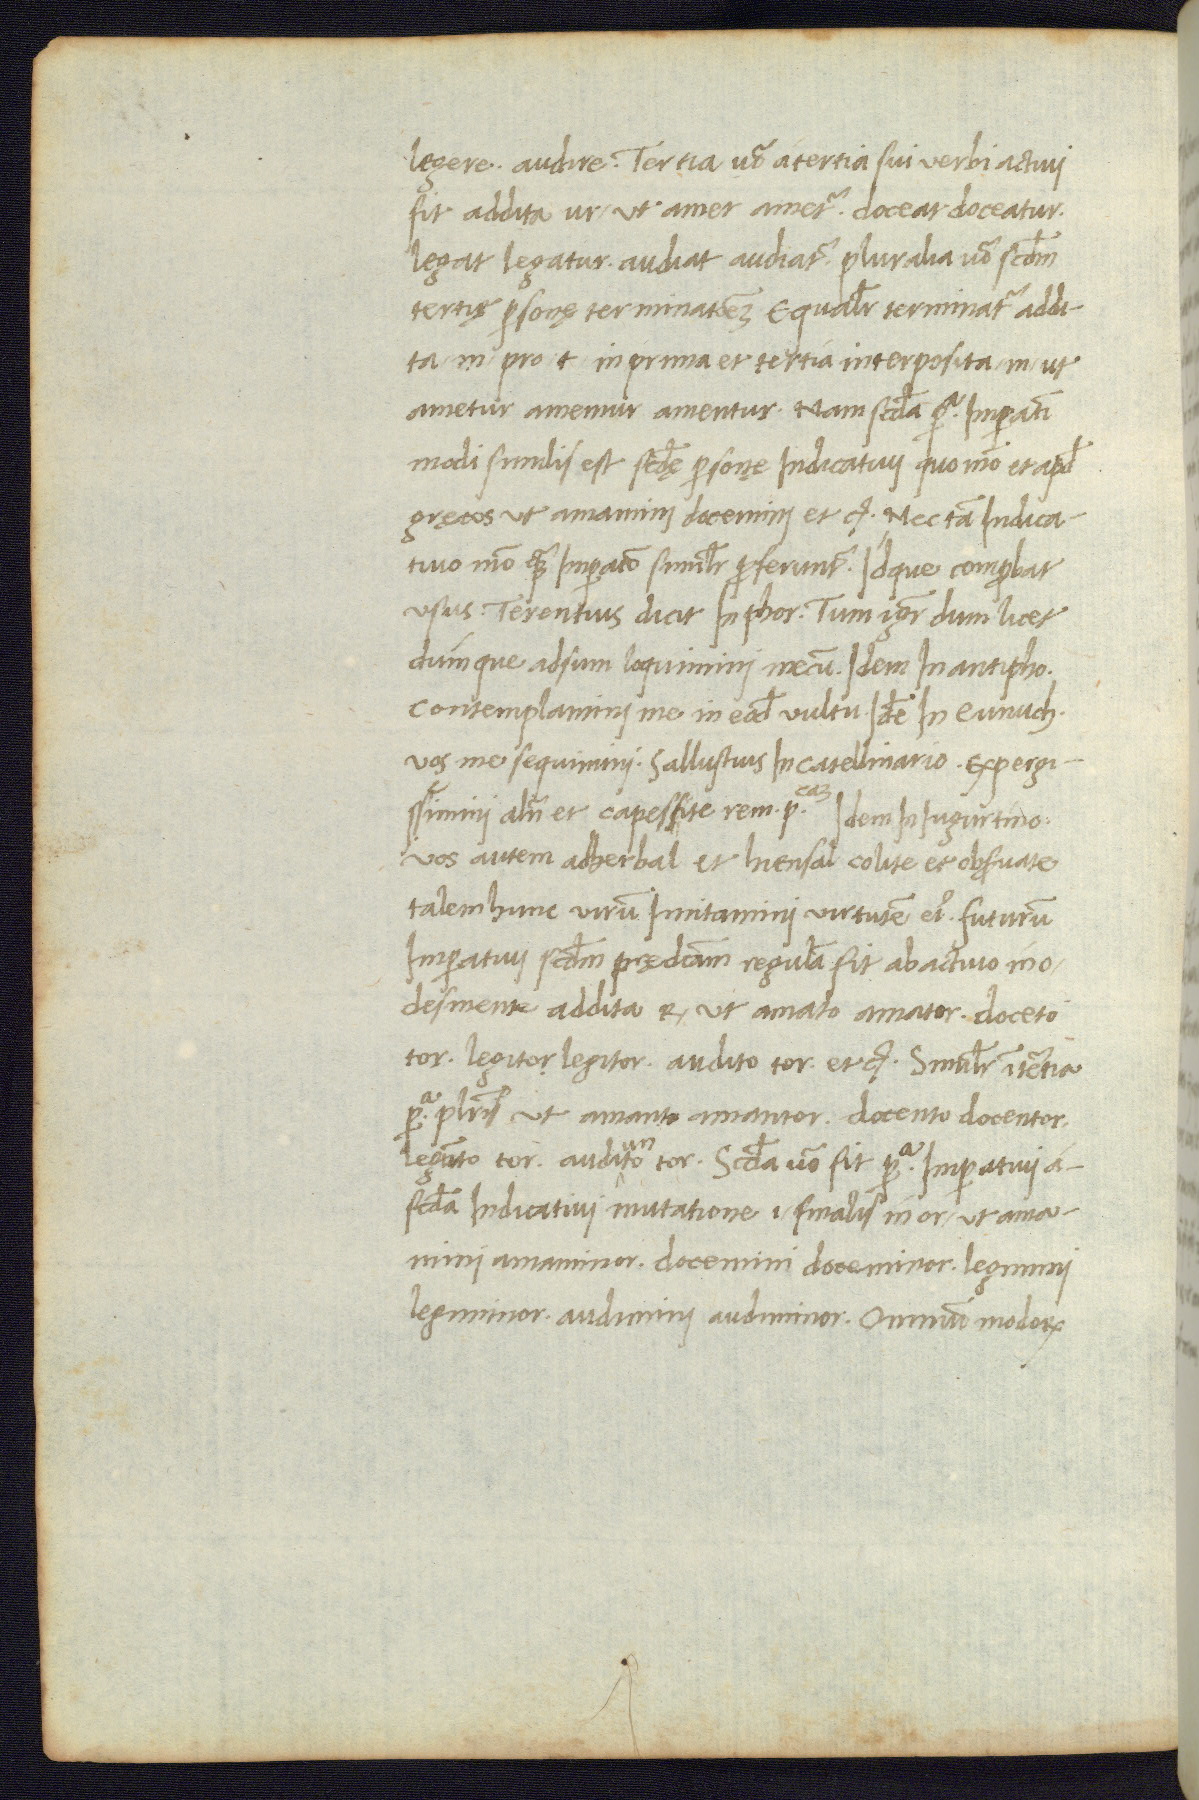 legere. audire. Tertia uo᷎ a tertia sui verbi actiui
fit addita ur, vt amet amet᷑. doceat doceatur.
legat legatur. audiat audiat᷑. pluralia uo᷎ scd̄m
tertię ꝑsonę terminatōꝫ Equalr̄ terminat᷑ addi-
ta, m, pro t, in prima et tertia interposita, m, ut
ametur amemur amentur. Nam scd̄a ꝑᵃ. Imꝑati
modi similis est scd̄ę ꝑsonę Indicatiui quo mō et apd̄
gręcos vt amamini docemini et c̄. Nec tā Indica-
tiuo mō qᷓ Imꝑatō similr̄ ꝓferunt᷑. Idque comꝓbat
vsus. Terentius dicit In phor. Tum igr̄ dum licet
dumque adsum loquimini mecū. Idem In antipho.
Contemplamini me in eod̄ vultu. Idē In Eunuch.
vos me sequimini. Sallustius In catellinario. Expergi-
ssimini aln̄ et capessite rem. p.caꝫ Idem In Iugurtino.
vos autem adherbal et hiensal colite et obseruate
talem hunc virū. Imitamini virtutē et̉. futurū
Imꝑatiui scd̄m prędcām regulā fit ab actiuo in o,
desinente addita R, vt amato amator. doceto
tor. legitor legitor. audito tor. et c̄. Similr̄ ī tertia
ꝑᵃ. plris̄ vt amanto amantor. docento docentor.
legunto tor. audiunto tor. Scd̄a uo᷎ fit ꝑᵃ. Imꝑatiui a-
scd̄a Indicatiui mutatione i, finalis in or, vt ama-
mini amaminor. docemini doceminor. legimini
legiminor. audimini audiminor. Omniū modoꝝ